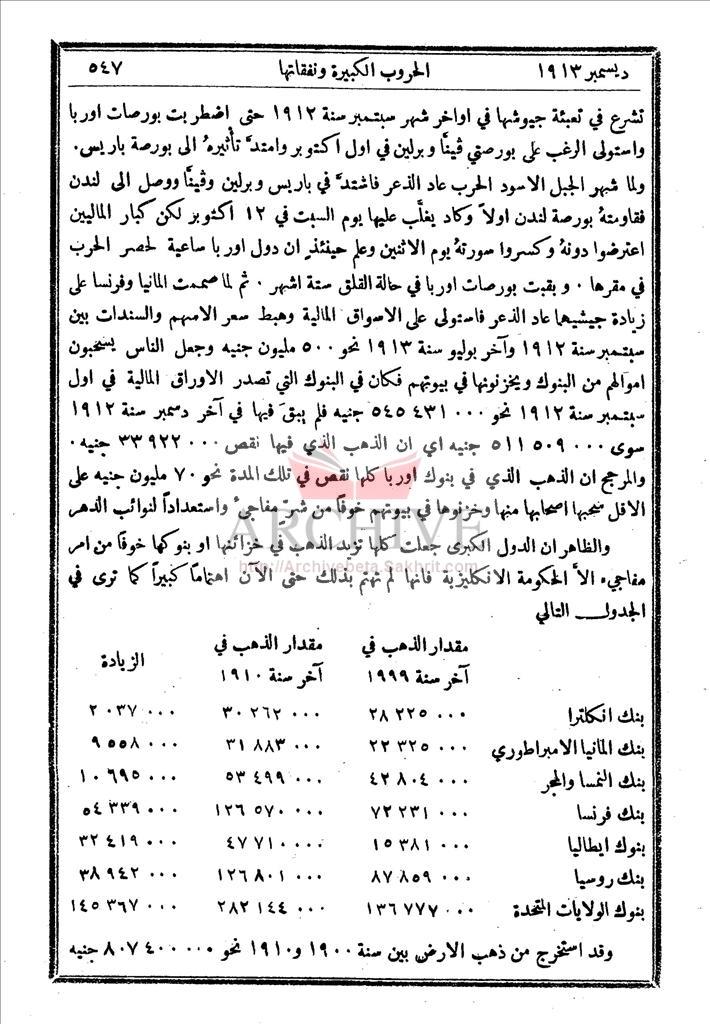 ديسمبر ١٩١٣ الحروب الكبيرة ونفقاتها ٥٤٧
تشرع في تعبئة جيوشها في اواخر شهر سبتمبر سنة ١٩١٢ حتى اضطربت بورصات اوربا
واستولى الرعب على بورصتي ڤينَّا وبرلين في اول اكتوبر وامتدَّ تأثيرهُ الى بورصة باريس.
ولما شهر الجبل الاسود الحرب عاد الذعر فاشتدَّ في باريس وبرلين وڤينَّا ووصل الى لندن
فقاومتهُ بورصة لندن اولاً وكاد يغلَّب عليها يوم السبت في ١٢ اكتوبر لكن كبار الماليين
اعترضوا دونهُ وكسروا سورتهُ يوم الاثنين وعلم حينئذٍ ان دول اوربا ساعية لحصر الحرب
في مقرها . وبقيت بورصات اوربا في حالة القلق ستة اشهر . ثم لما صممت المانيا وفرنسا على
زيادة جيشيهما عاد الذعر فاستولى على الاسواق المالية وهبط سعر الاسهم والسندات بين
سبتمبر سنة ١٩١٢ وآخر يوليو سنة ١٩١٣ نحو ٥٠٠ مليون جنيه وجعل الناس يسحبون
اموالهم من البنوك ويخزنونها في بيوتهم فكان في البنوك التي تصدر الاوراق المالية في اول
سبتمبر سنة ١٩١٢ نحو ٥٤٥ ٤٣١ ٠٠٠ جنيه فلم يبقَ فيها في آخر دسمبر سنة ١٩١٢
سوى ٥١١ ٥٠٩ ٠٠٠ جنيه اي ان الذهب الذي فيها نقص ٣٣ ٩٢٢ ٠٠٠ جنيه .
والمرجح ان الذهب الذي في بنوك اوربا كلها نقص في تلك المدة نحو ٧٠ مليون جنيه على
الاقل سحبها اصحابها منها وخزنوها في بيوتهم خوفاً من شرّ مفاجئ واستعداداً لنوائب الدهر
والظاهر ان الدول الكبرى جعلت كلها تزيد الذهب في خزائنها او بنوكها خوفاً من امر
مفاجيء الاَّ الحكومة الانكليزية فانها لم تهتم بذلك حتى الآن اهتماماً كبيراً كما ترى في
الجدول التالي
مقدار الذهب في مقدار الذهب في الزيادة
آخر سنة ١٩٩٩ آخر سنة ١٩١٠
بنك انكلترا ٢٨ ٢٢٥ ٠٠٠ ٣٠ ٢٦٢ ٠٠٠ ٢ ٠٣٧ ٠٠٠
بنك المانيا الامبراطوري ٢٢ ٣٢٥ ٠٠٠ ٣١ ٨٨٣ ٠٠٠ ٩ ٥٥٨ ٠٠٠
بنك النمسا والمجر ٤٢ ٨٠٤ ٠٠٠ ٥٣ ٤٩٩ ٠٠٠ ١٠ ٦٩٥ ٠٠٠
بنك فرنسا ٧٢ ٢٣١ ٠٠٠ ١٢٦ ٥٧٠ ٠٠٠ ٥٤ ٣٣٩ ٠٠٠
بنوك ايطاليا ١٥ ٣٨١ ٠٠٠ ٤٧ ٧١٠ ٠٠٠ ٣٢ ٤١٩ ٠٠٠
بنك روسيا ٨٧ ٨٥٩ ٠٠٠ ١٢٦ ٨٠١ ٠٠٠ ٣٨ ٩٤٢ ٠٠٠
بنوك الولايات المتحدة ١٣٦ ٧٧٧ ٠٠٠ ٢٨٢ ١٤٤ ٠٠٠ ١٤٥ ٣٦٧ ٠٠٠
وقد استخرج من ذهب الارض بين سنة ١٩٠٠ و١٩١٠ نحو ٨٠٧ ٤٠٠ ٠٠٠ جنيه
ARCHIVE
http://Archivebeta.Sakhrit.com